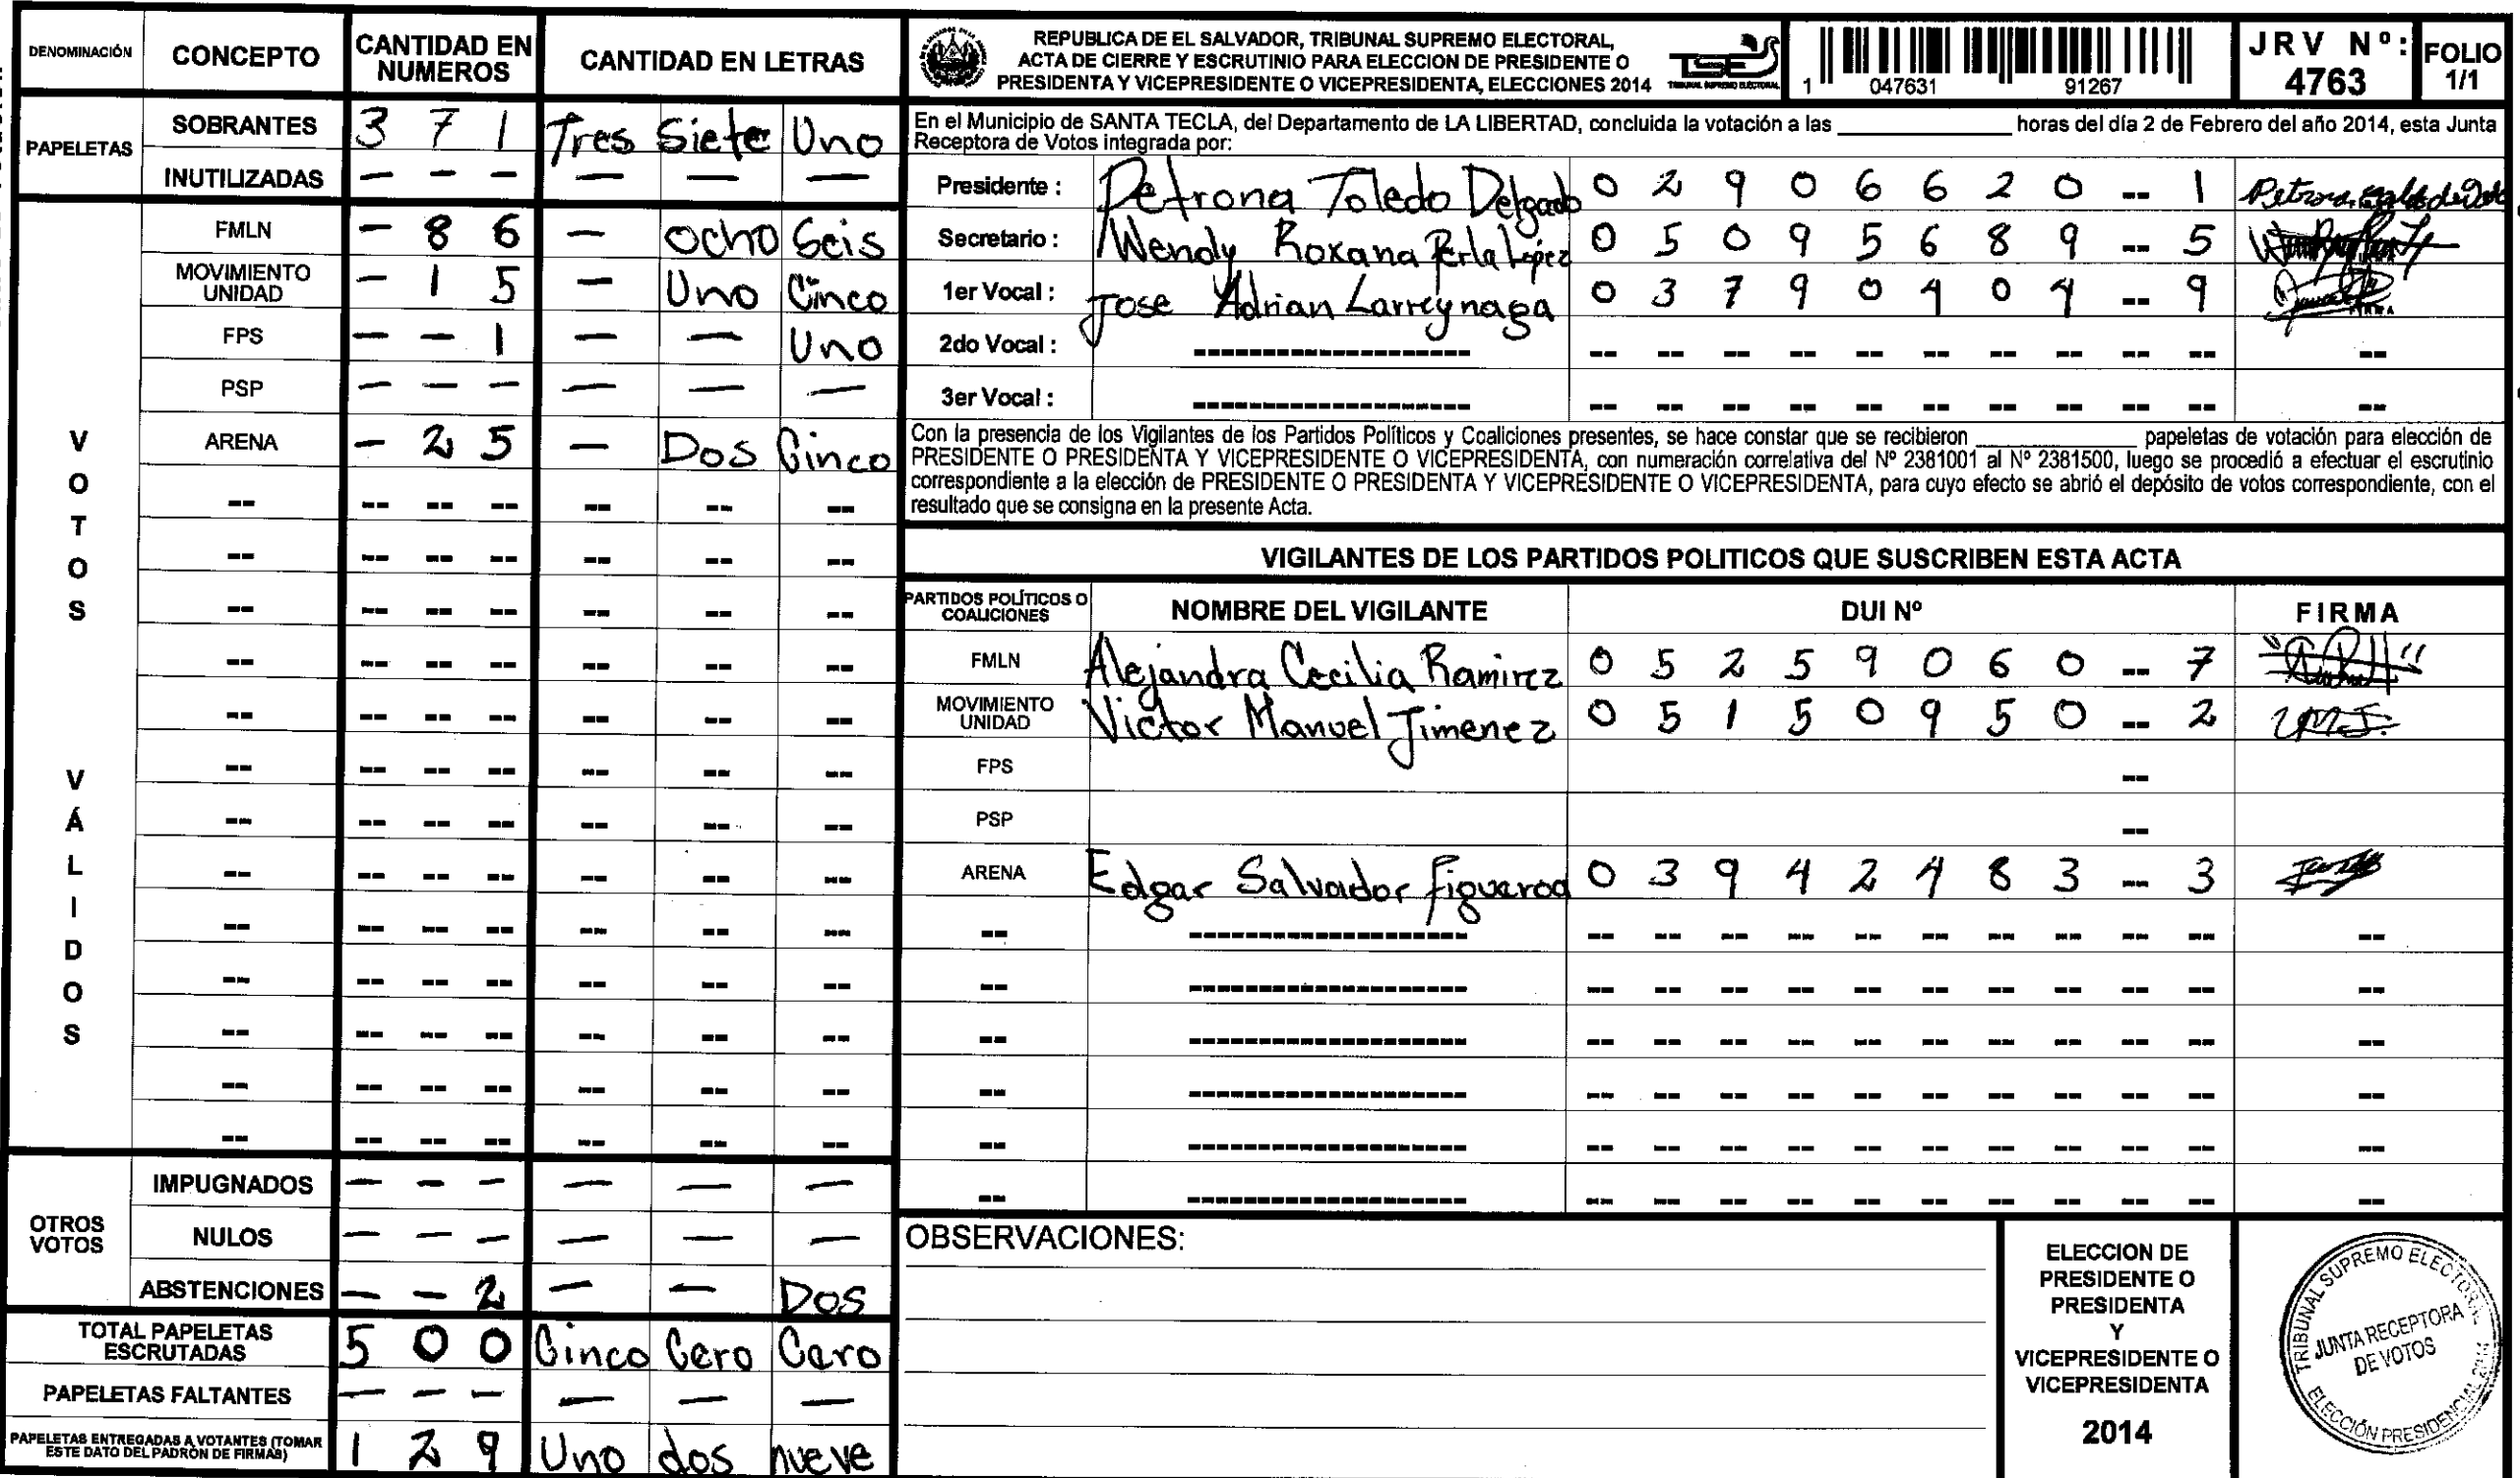 DENOMINACIÓN CONCEPTO CANTIDAD EN NUMEROS CANTIDAD EN LETRAS
PAPELETAS
SOBRANTES 3 7 1 Tres Siete Uno
INUTILIZADAS — — — — — —
VOTOS VÁLIDOS
FMLN — 8 6 — Ocho Seis
MOVIMIENTO UNIDAD — 1 5 — Uno Cinco
FPS — — 1 — — Uno
PSP — — — — — —
ARENA — 2 5 — Dos Cinco
-- -- -- -- -- -- --
-- -- -- -- -- -- --
-- -- -- -- -- -- --
-- -- -- -- -- -- --
-- -- -- -- -- -- --
-- -- -- -- -- -- --
-- -- -- -- -- -- --
-- -- -- -- -- -- --
-- -- -- -- -- -- --
-- -- -- -- -- -- --
-- -- -- -- -- -- --
-- -- -- -- -- -- --
-- -- -- -- -- -- --
OTROS VOTOS
IMPUGNADOS — — — — — —
NULOS — — — — — —
ABSTENCIONES — — 2 — — Dos
TOTAL PAPELETAS ESCRUTADAS 5 0 0 Cinco Cero Cero
PAPELETAS FALTANTES — — — — — —
PAPELETAS ENTREGADAS A VOTANTES (TOMAR ESTE DATO DEL PADRÓN DE FIRMAS) 1 2 9 Uno dos nueve
REPUBLICA DE EL SALVADOR, TRIBUNAL SUPREMO ELECTORAL,
ACTA DE CIERRE Y ESCRUTINIO PARA ELECCION DE PRESIDENTE O
PRESIDENTA Y VICEPRESIDENTE O VICEPRESIDENTA, ELECCIONES 2014
TSE
TRIBUNAL SUPREMO ELECTORAL
1 047631 91267
JRV Nº: 4763
FOLIO 1/1
En el Municipio de SANTA TECLA, del Departamento de LA LIBERTAD, concluida la votación a las ____________ horas del día 2 de Febrero del año 2014, esta Junta
Receptora de Votos integrada por:
Presidente : Petrona Toledo Delgado 0 2 9 0 6 6 2 0 -- 1
Secretario : Wendy Roxana Perla López 0 5 0 9 5 6 8 9 -- 5
1er Vocal : Jose Adrian Larreynaga 0 3 7 9 0 4 0 4 -- 9
FIRMA
2do Vocal : -------------------- -- -- -- -- -- -- -- -- -- -- --
3er Vocal : -------------------- -- -- -- -- -- -- -- -- -- -- --
Con la presencia de los Vigilantes de los Partidos Políticos y Coaliciones presentes, se hace constar que se recibieron ____________ papeletas de votación para elección de
PRESIDENTE O PRESIDENTA Y VICEPRESIDENTE O VICEPRESIDENTA, con numeración correlativa del Nº 2381001 al Nº 2381500, luego se procedió a efectuar el escrutinio
correspondiente a la elección de PRESIDENTE O PRESIDENTA Y VICEPRESIDENTE O VICEPRESIDENTA, para cuyo efecto se abrió el depósito de votos correspondiente, con el
resultado que se consigna en la presente Acta.
VIGILANTES DE LOS PARTIDOS POLITICOS QUE SUSCRIBEN ESTA ACTA
PARTIDOS POLÍTICOS O COALICIONES NOMBRE DEL VIGILANTE DUI Nº FIRMA
FMLN Alejandra Cecilia Ramirez 0 5 2 5 9 0 6 0 -- 7
MOVIMIENTO UNIDAD Victor Manuel Jimenez 0 5 1 5 0 9 5 0 -- 2
FPS --
PSP --
ARENA Edgar Salvador Figueroa 0 3 9 4 2 4 8 3 -- 3
-- -------------------- -- -- -- -- -- -- -- -- -- -- --
-- -------------------- -- -- -- -- -- -- -- -- -- -- --
-- -------------------- -- -- -- -- -- -- -- -- -- -- --
-- -------------------- -- -- -- -- -- -- -- -- -- -- --
-- -------------------- -- -- -- -- -- -- -- -- -- -- --
-- -------------------- -- -- -- -- -- -- -- -- -- -- --
OBSERVACIONES:
ELECCION DE
PRESIDENTE O
PRESIDENTA
Y
VICEPRESIDENTE O
VICEPRESIDENTA
2014
TRIBUNAL SUPREMO ELECTORAL
JUNTA RECEPTORA
DE VOTOS
ELECCIÓN PRESIDENCIAL 2014